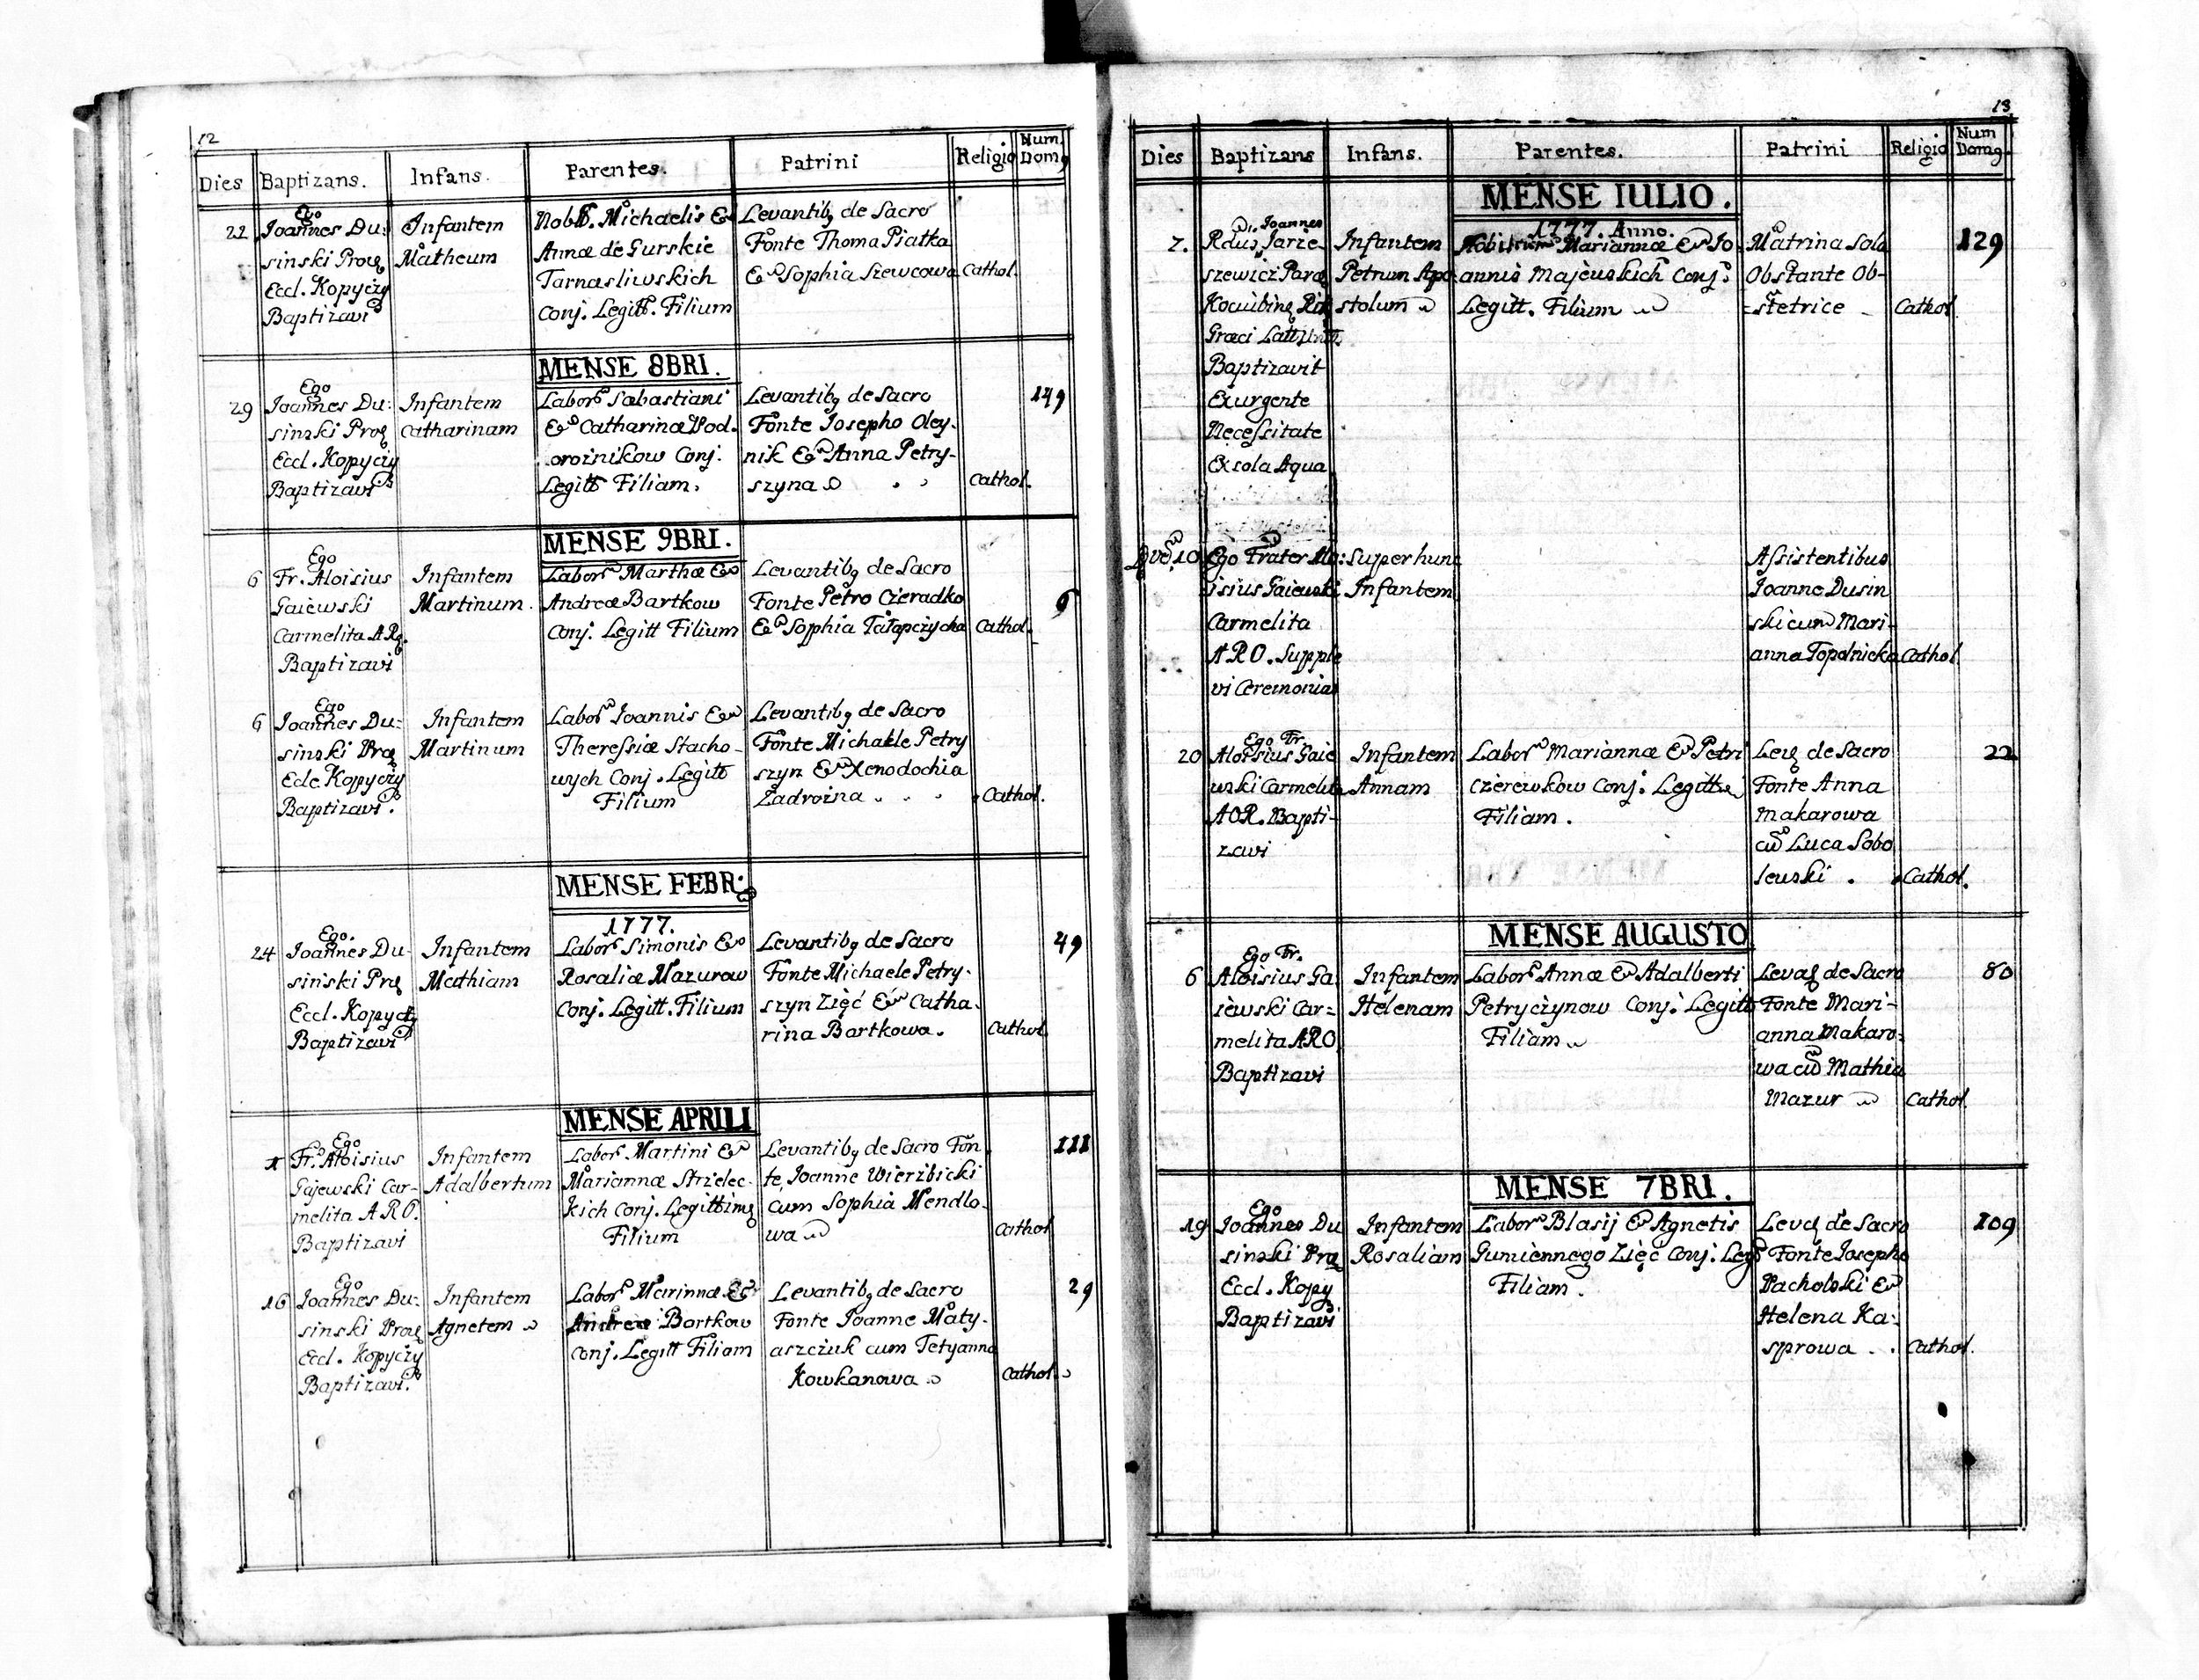 12
Dies Baptizans. Infans. Parentes. Patrini Religio Num. Domq
22
Ego
Joannes Du:
sinski Proq
Eccl. Kopyczy
Baptizavi
Infantem
Matheum
Nobb. Michaelis &
Annæ de Gurskie
Tarnasliwskich
conj. Legitt. Filium
Levantibq de Sacro
Fonte Thoma Piatka
& Sophia Szewcowa
Cathol.
MENSE 8BRI.
29
Ego
Joannes Du:
sinski Proq
Eccl. Kopyczy
Baptizavi
Infantem
Catharinam
Labor. Sabastiani
& Catharinæ Pod.
orożnikow Conj.
Legitt Filiam.
Levantibq de Sacro
Fonte Josepho Oley-
nik & Anna Petry-
szyna
Cathol.
149
MENSE 9BRI.
6
Ego
Fr. Aloisius
Gaiewski
Carmelita ARq.
Baptizavi
Infantem
Martinum.
Labor. Marthæ &
Andreæ Bartkow
Conj. Legitt Filium
Levantibq de Sacro
Fonte Petro Czeradko
& Sophia Tatapczycha
Cathol.
6
6
Ego
Joannes Du:
sinski Prq
Ecle Kopyczy
Baptizavi.
Infantem
Martinum
Labor. Joannis &
Theressiæ Stacho-
wych Conj. Legitt
Filium
Levantibq de Sacro
Fonte Michaele Petry
szyn & Xenodochia
Zadrożna
Cathol.
MENSE FEBR:
1777.
24
Ego.
Joannes Du-
sinski Prq
Eccl. Kopycz
Baptizavi
Infantem
Mathiam
Labor. Simonis &
Rosaliæ Mazurow
Conj. Legitt. Filium
Levantibq de Sacro
Fonte Michaele Petry-
szyn Zięć & Catha-
rina Bartkowa.
Cathol
49
MENSE APRILI
1
Ego
Fr. Aloisius
Gajewski Car-
melita ARO.
Baptizavi
Infantem
Adalbertum
Labor. Martini &
Mariannæ Strzelec-
kich Conj. Legittimq
Filium
Levantibq de Sacro Fon
te, Joanne Wierzbicki
cum Sophia Mendlo-
wa
Cathol
111
16
Ego
Joannes Du:
sinski Proq
Eccl. Kopyczy
Baptizavi.
Infantem
Agnetem
Labor. Marinnæ &
Andreæ Bartkow
Conj. Legitt Filiam
Levantibq de Sacro
Fonte Joanne Maty-
aszczuk cum Tetyanna
Kowkanowa
Cathol.
29
13
Dies Baptizans Infans. Parentes. Patrini Religio Num Domq.
MENSE IULIO.
1777. Anno.
7.
Di. Joannes
Rdus Jarze-
szewicz Paro
Infantem
Petrum Apo
stolum
Mariannæ & Jo-
annis Majewskich Conj.
Legitt. Filium
Graci
Baptizavit
Exurgente
Necessitate
Ex sola Aqua
Matrina Sola
Obstante Ob-
-stetrice
Cathol.
129
10
Ego Frater Alo:
isius Gaiewski
Carmelita
ARO. Supple
vi Ceremonias
Super hunc
Infantem
Assistentibus
Joanne Dusin
ski cum Mari-
anna Topolnicka
Cathol
20
Ego Fr.
Aloisius Gaie
wski Carmelita
AOR. Bapti-
zavi
Infantem
Annam
Labor. Mariannæ & Petri
Czerewkow Conj. Legitt
Filiam.
Levq de Sacro
Fonte Anna
Makarowa
cu Luca Sobo
lewski
Cathol.
22
MENSE AUGUSTO
6
Ego Fr.
Aloisius Ga
iewski Car=
melita ARO
Baptizavi
Infantem
Helenam
Labor. Annæ & Adalberti
Petryczynow Conj. Legitt
Filiam
Levaq de Sacro
Fonte Mari-
anna Makaro-
wa cu Mathia
Mazur
Cathol.
80
MENSE 7BRI.
19
Ego
Joannes Du
sinski Prq
Eccl. Kopy
Baptizavi
Infantem
Rosaliam
Labor. Blasij & Agnetis
Gumiennego Zięć Conj. Leg
Filiam.
Levaq de Sacro
Fonte Josepho
Pacholski &
Helena Ka:
sprowa
Cathol.
109